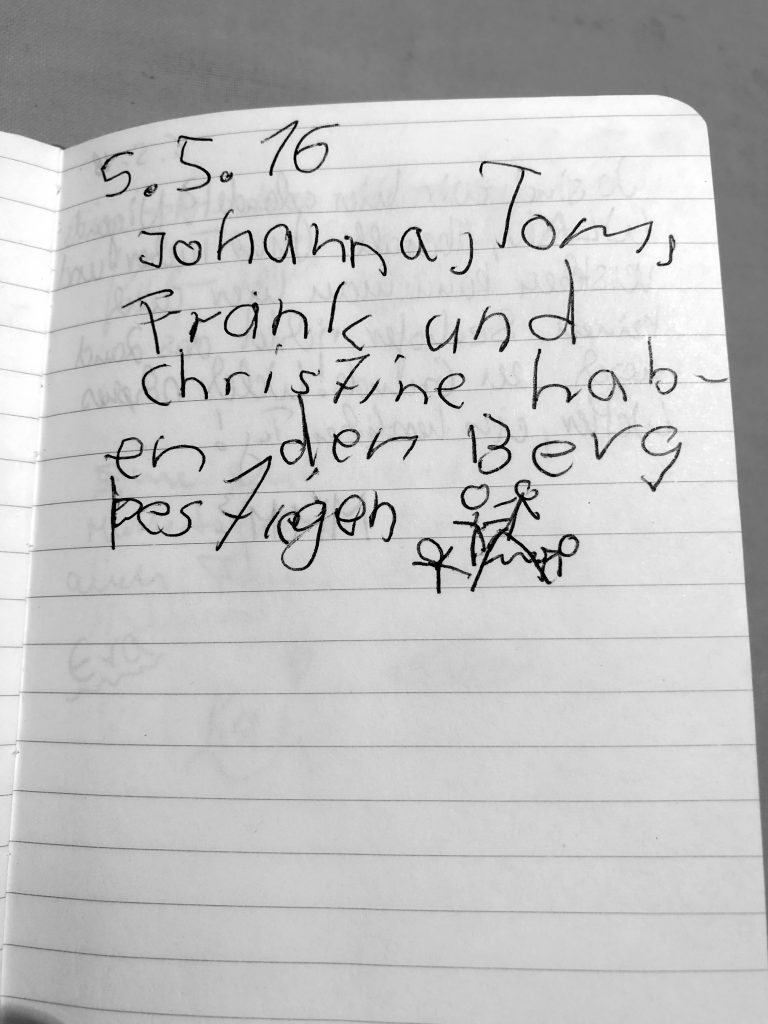 5.5.16
Johanna, Tom,
Frank und
Christine hab-
en den Berg
bestiegen